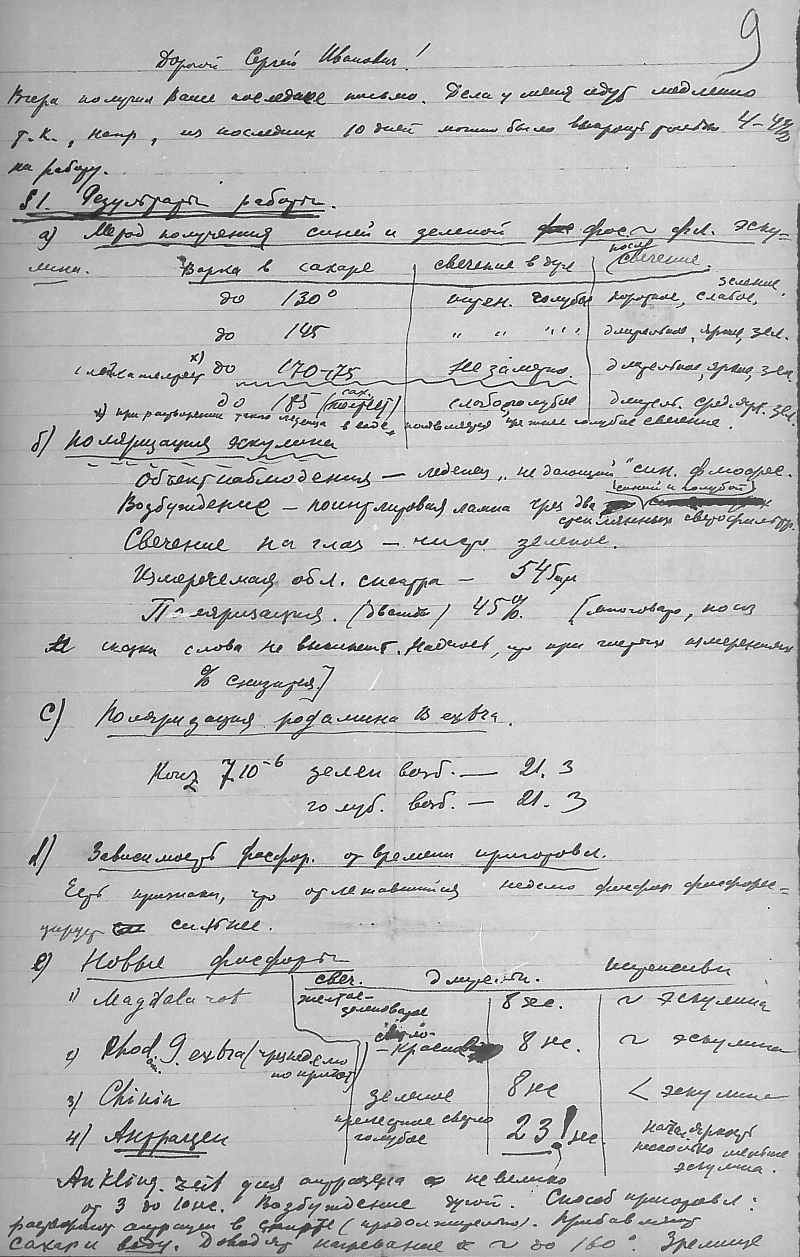 9
Дорогой Сергей Иванович!
Вчера получил Ваше последнее письмо. Дела у меня идут медленно
т.к., напр., из последних 10 дней можно было выкроить только 4-
на работу.
§1. Результаты работы.
а) Метод получения синей и зеленой фос ~ фл. эску-
лина.
Варка в сахаре | свечение в дуге | после свечение
до 130° | интен. голубое | короткое, слабое, зеленое
до 145 | " " " " | длительное, яркое, зел.
х) до 170-175 | незаметно. | длительное, яркое, зел.
до 185 (сах. темнеет) | слабо голубое | длительн. сред. ярк. зел.
х) при растворении такого леденца в воде, появляется голубое свечение.
б) Поляризация эскулина
Объект наблюдения — леденец „не дающий" син. флюорес.
Возбуждение — лампа чрез два синий и голубой
стеклянных светофильтр.
Свечение на глаз — чисто зеленое.
Измеряемая обл. спектра — 545
Поляризация. (дважды) 45%. [многовато, но из
сказки слова не выкинешь. Надеюсь, что при измерениях
% снизится.]
с) Поляризация родамина B extra.
Конц 7.10⁻⁶ зелен возб. — 21.3
голуб. возб. — 21.3
d) Зависимость фосфор. от времени приготовл.
Есть признаки, что отлежавшийся неделю фосфор фосфорес-
цирует сильнее.
е) Новые фосфоры
свеч. | длительн. | интенсивн
1) Magdala rot | желто-зеленоватое | 8 sec. | ~ эскулина
2) Rhod. 9. extra (чрез неделю по пригот) | -красно | 8 sec. | ~ эскулина
3) Chinin | зеленое | 8 sec | < эскулина
4) Антрацен | прелестное светло голубое | 23! sec. | начал. яркость несколько меньше эскулина.
Ankling. zeit для антрацена невелико
от 3 до 10 sec. Возбуждение дугой. Способ приготовл:
растворяют антрацен в спирте (продолжительно). Прибавляют
сахар и воду. Доводят нагревание ~ до 160°. Зрелище